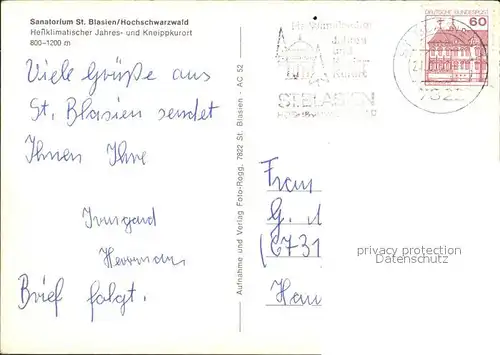 Sanatorium St. Blasien/Hochschwarzwald
Heilklimatischer Jahres- und Kneippkurort
800–1200 m
Viele Grüße aus
St. Blasien sendet
Ihnen Ihre
Irmgard
Herrmann
Brief folgt.
Aufnahme und Verlag Foto-Rogg. 7822 St. Blasien - AC 52
Heilklimatischer
Jahres-
und
Kneipp-
kurort
ST. BLASIEN
DEUTSCHE BUNDESPOST
60
7822
Frau
G.
(6731
privacy protection
Datenschutz